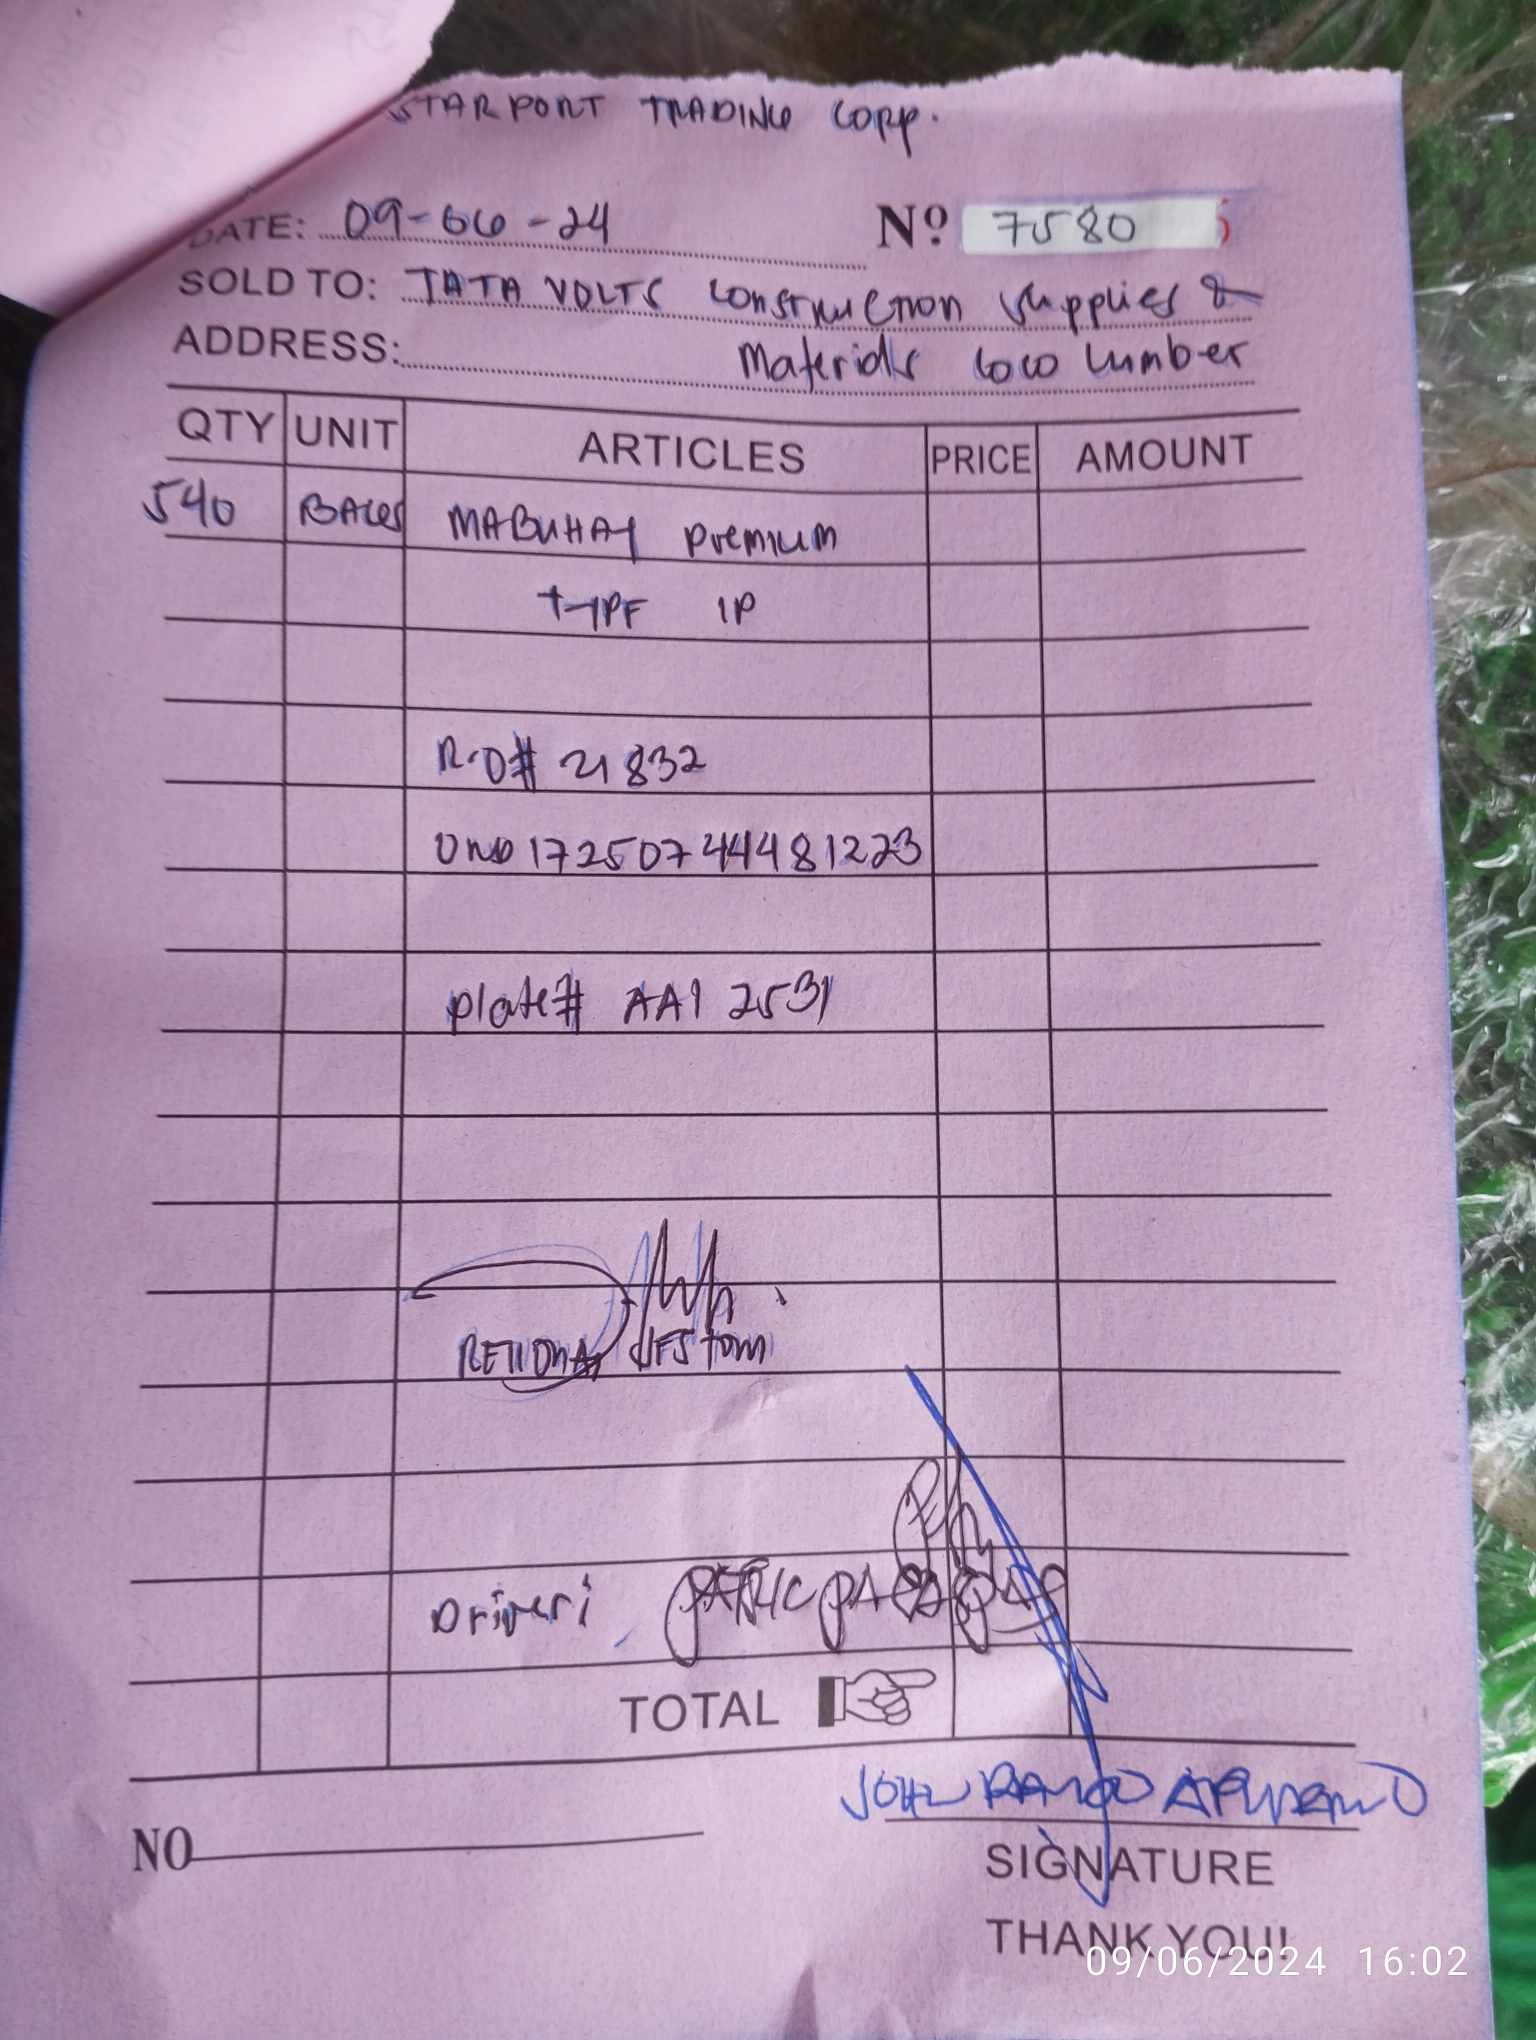 STARPORT TRADING CORP.
DATE: 09-06-24 Nº 7580
SOLD TO: TATA VOLTS Construction Supplies &
ADDRESS: Materials Coco Lumber
QTY UNIT ARTICLES PRICE AMOUNT
540 BAGS MABUHAY Premium
TYPE 1P
R.O# 21832
ONO 17250744481223
plate# AAI 2531
Driver: PATRIC
TOTAL
JOHN
NO
SIGNATURE
THANK YOU!
09/06/2024 16:02